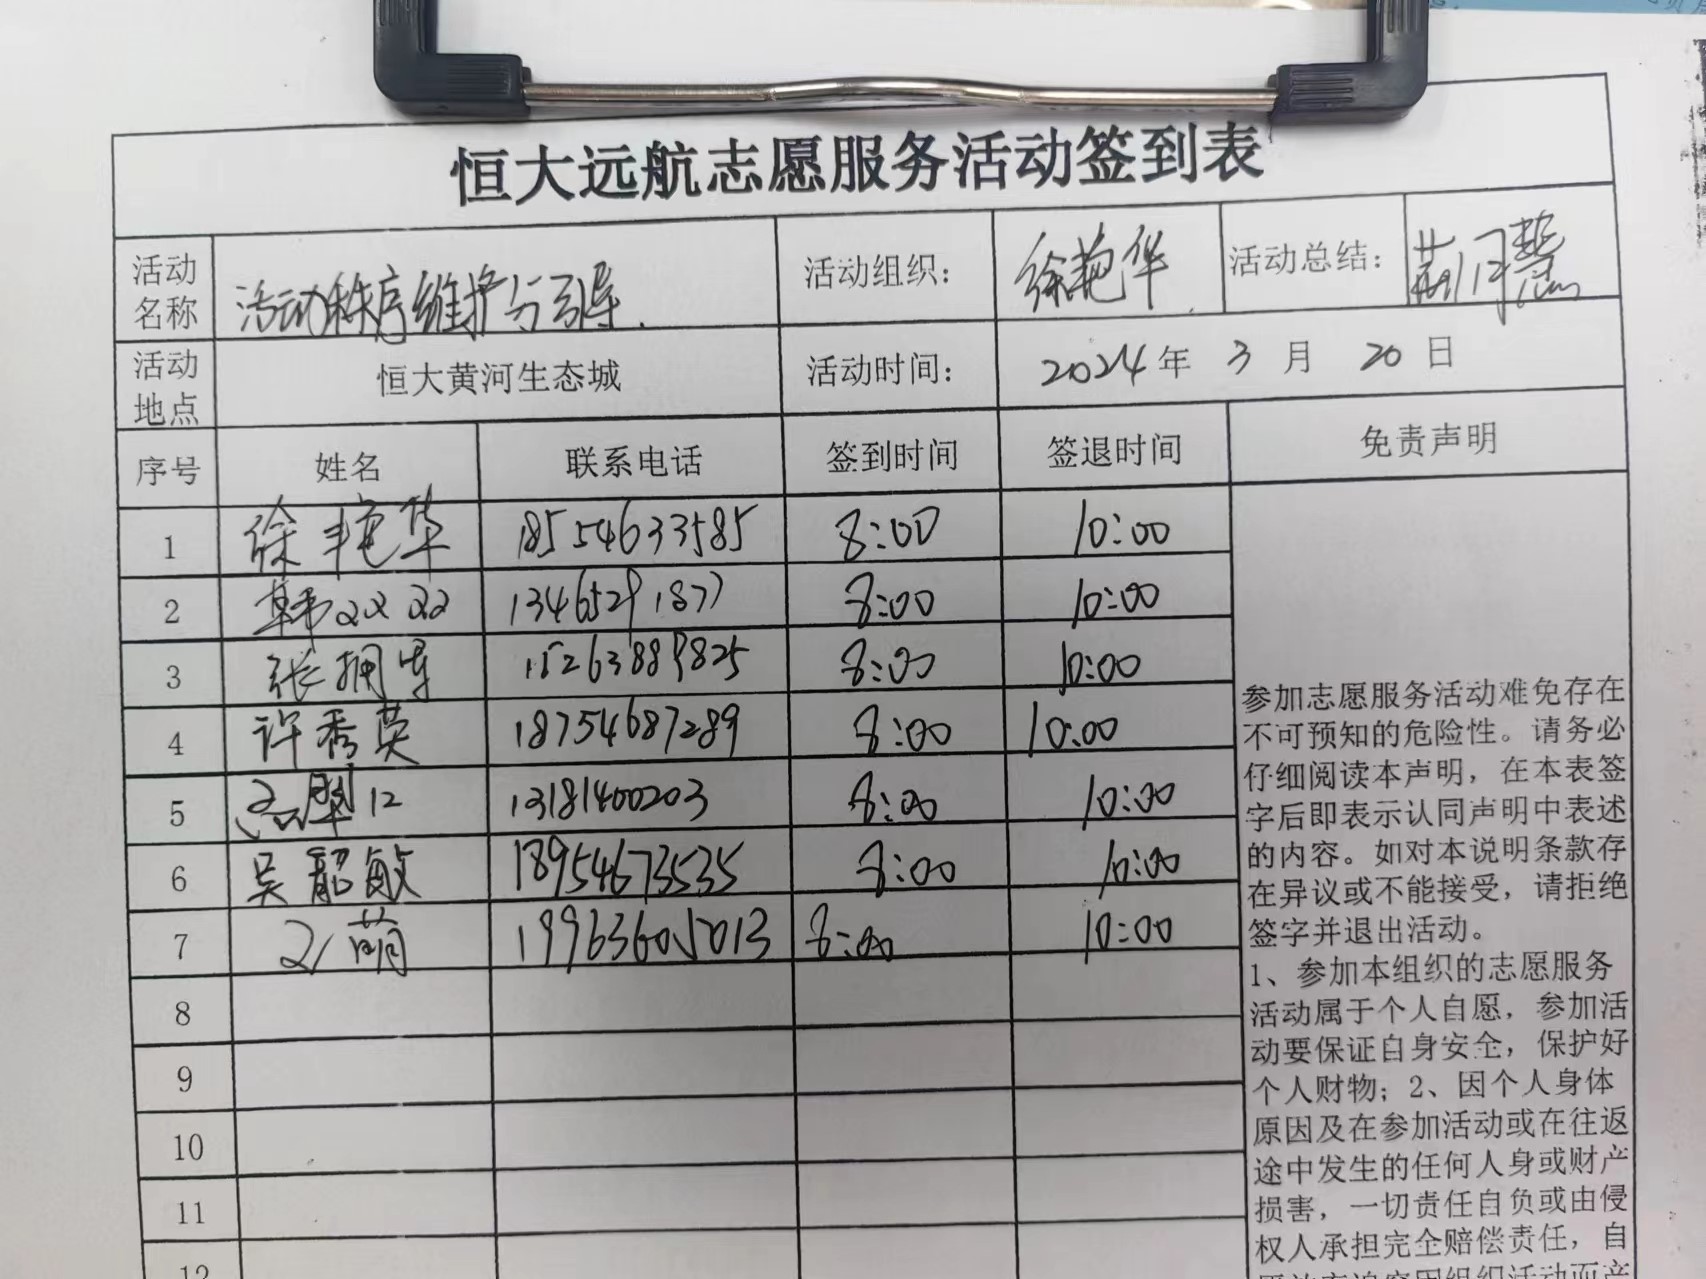 恒大远航志愿服务活动签到表
活动名称 活动秩序维护与引导. 活动组织： 徐艳华 活动总结：
活动地点 恒大黄河生态城 活动时间： 2024年 3 月 20 日
序号 姓名 联系电话 签到时间 签退时间 免责声明
1 徐艳华 18554633585 8:00 10:00
2 韩双双 13465291877 8:00 10:00
3 张拥军 15263889825 8:00 10:00
4 许秀英 18754687289 8:00 10:00
5 13181400203 8:00 10:00
6 吴韶敏 18954673535 8:00 10:00
7 萌 19963605013 8:00 10:00
8
9
10
11
12
参加志愿服务活动难免存在
不可预知的危险性。请务必
仔细阅读本声明，在本表签
字后即表示认同声明中表述
的内容。如对本说明条款存
在异议或不能接受，请拒绝
签字并退出活动。
1、参加本组织的志愿服务
活动属于个人自愿，参加活
动要保证自身安全，保护好
个人财物；2、因个人身体
原因及在参加活动或在往返
途中发生的任何人身或财产
损害，一切责任自负或由侵
权人承担完全赔偿责任，自